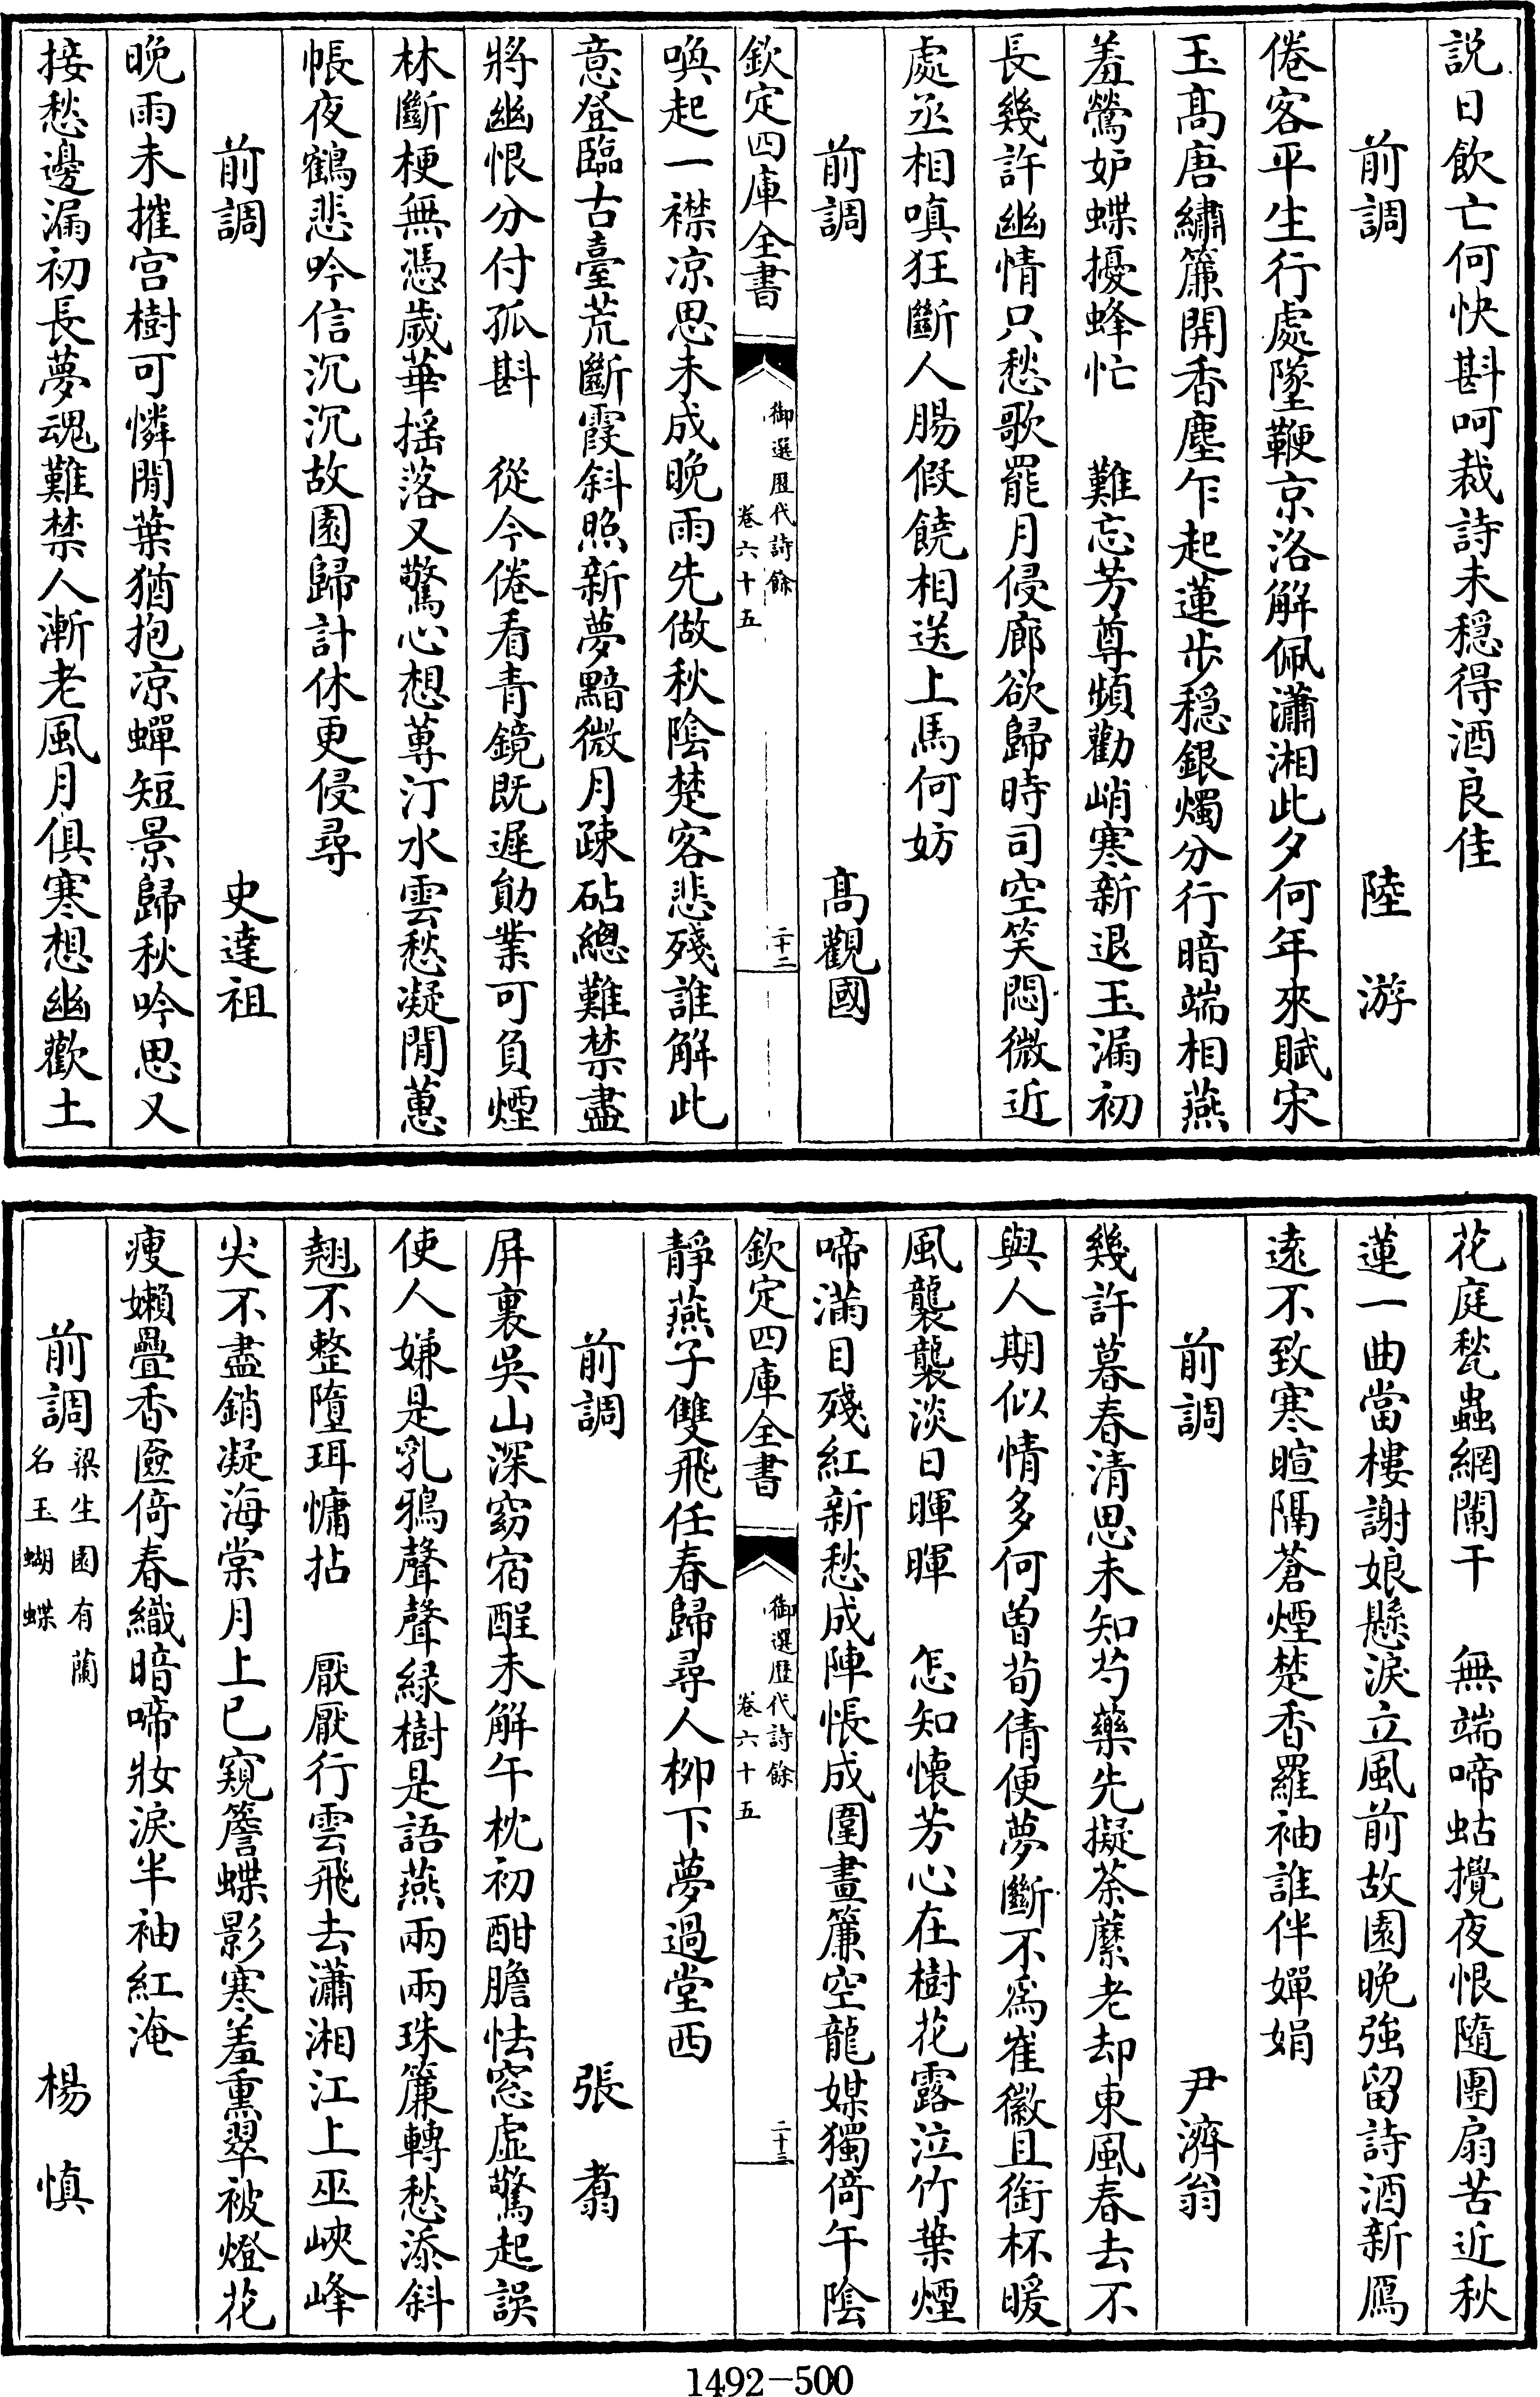 説日飲亡何快斟呵裁詩未穏得酒良佳
前調 陸游
倦客平生行處墜鞭京洛解佩瀟湘此夕何年來賦宋
玉髙唐繡簾開香塵乍起蓮步穏銀燭分行暗端相燕
羞鶯妒蝶擾蜂忙　難忘芳尊頻勸峭寒新退玉漏初
長幾許幽情只愁歌罷月侵廊欲歸時司空笑悶微近
處丞相嗔狂斷人腸假饒相送上馬何妨
前調 髙觀國
欽定四庫全書 御選歴代詩餘 卷六十五 二十二
喚起一襟凉思未成晚雨先做秋陰楚客悲殘誰解此
意登臨古臺荒斷霞斜照新夢黯微月疎砧總難禁盡
將幽恨分付孤斟　從今倦看青鏡既遲勛業可負煙
林斷梗無憑歲華揺落又驚心想蓴汀水雲愁凝閒蕙
帳夜鶴悲吟信沉沉故園歸計休更侵尋
前調 史達祖
晚雨未摧宫樹可憐閒葉猶抱凉蟬短景歸秋吟思又
接愁邊漏初長夢魂難禁人漸老風月俱寒想幽歡土
花庭甃蟲網闌干　無端啼蛄攪夜恨隨團扇苦近秋
蓮一曲當樓謝娘懸淚立風前故園晚強留詩酒新鴈
遠不致寒暄隔蒼煙楚香羅袖誰伴嬋娟
前調 尹濟翁
幾許暮春清思未知芍藥先擬荼蘼老却東風春去不
與人期似情多何曽荀倩便夢斷不爲崔徽且銜杯暖
風襲襲淡日暉暉　怎知懐芳心在樹花露泣竹葉煙
啼滿目殘紅新愁成陣悵成圍畫簾空龍媒獨倚午陰
欽定四庫全書 御選歴代詩餘 卷六十五 二十三
靜燕子雙飛任春歸尋人柳下夢過堂西
前調 張翥
屏裏吳山深窈宿酲未解午枕初酣膽怯窓虛驚起誤
使人嫌是乳鴉聲聲緑樹是語燕兩兩珠簾轉愁添斜
翹不整墮珥慵拈　厭厭行雲飛去瀟湘江上巫峽峰
尖不盡銷凝海棠月上已窺簷蝶影寒羞熏翠被燈花
瘦嬾疊香匳倚春纎暗啼妝淚半袖紅淹
前調 梁生園有蘭名玉蝴蝶 楊慎
1492-500